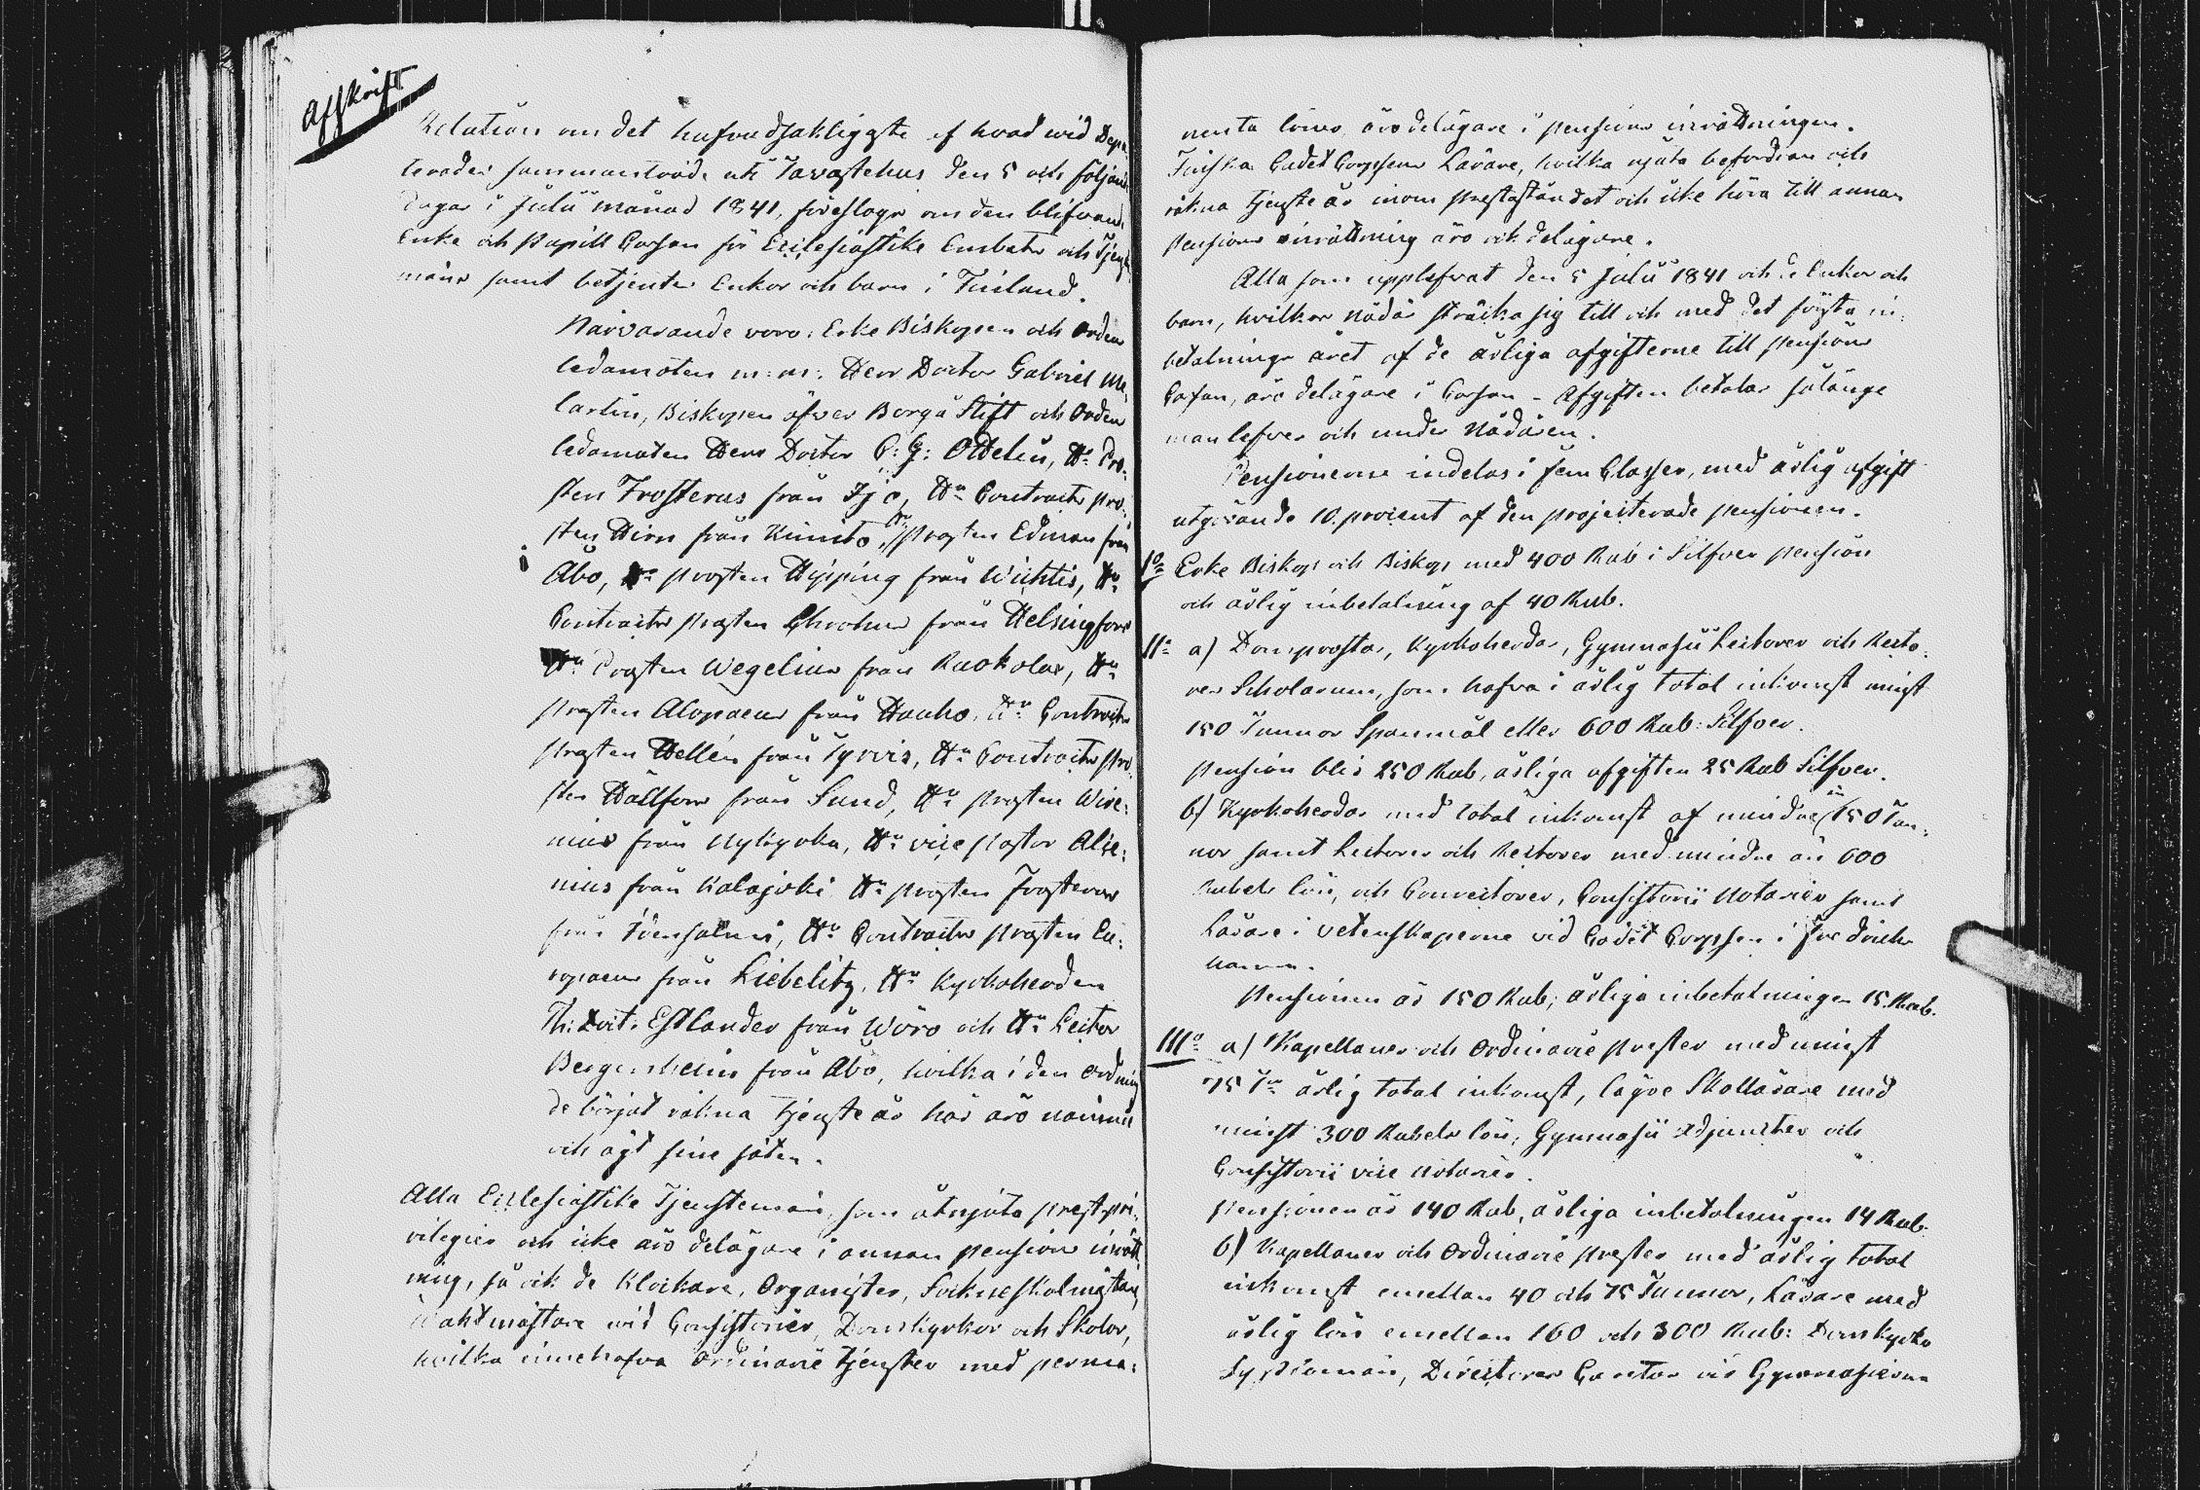 Afskrift
Relation om det hufvudsakligste af hvad wid Depu
terades sammanträde uti Tavastehus den 5 och följande
dagar i Julii månad 1841, föreslogs om den blifvande
Enke och Pupill Cassan för Ecclesiastike Embets och Tjenste
mäns samt betjenters Enkor och barn i Finland.
Närvarande voro: Erke Biskopen och Ordens
ledamoten m: m: Herr Doctor Gabriel Me,
lartin, Biskopen öfver Borgå Stift och Ordens
ledamoten Herr Doctor C: G: Ottelin, Hr Pro-
sten Frosterus från Ijo, Hr Contracts pro-
sten Hirn från Kimito, Hr Prosten Edman från
Åbo, Hr prosten Hipping från Wichtis, Hr
Contracts prosten Chrohns från Helsingfors
Hr Prosten Wegelius från Ruokolax, Hr
prosten Alopaeus från Hauho, Hr Contracts
prosten Hellén från Tyrvis, Hr Contracts pro,
sten Hällfors från Sund, Hr prosten Wire-
nius från Nykyrka, Hr vice pastor Alce-
nius från Kalajoki Hr prosten Frosterus
från Idensalmi, Hr Contracts prosten Eu-
ropaeus från Liebelitz, Hr Kyrkoherden
Th: Doct: Estlander från Wörå och Hr Lector
Bergenheim från Åbo, hvilka i den ordning
de börjat räkna tjenste år här äro nämnde
och ägt sine säten.
Alla Ecclesiastike Tjenstemän, som åtnjuta prest pri-
vilegier och icke äro delägare i annan pensions inrätt
ning, så ock de Klockare, Organister, Sockneskolmästare,
Waktmästare wid Consistorier, Domkyrkor och Skolor,
hvilka innehafva Ordinarie tjenster med perma-
nenta löner, äro delägare i pensions inrättningen.
Finska Cadet Corpsens Lärare, hvilka njuta befordran och
räkna tjenste år inom prestaståndet och icke höra till annan
pensions inrättning äro ock delägare.
Alla som upplefvat den 5 Julii 1841 och de Enkor och
barn, hvilkas nådår sträcka sig till och med det första in-
betalnings året af de årliga afgifterne till pensions
Cassan, äro delägare i Cassan - Afgiften betalas sålänge
man lefver och under Nådåren.
Pensionerne indelas i fem Classer, med årlig afgift
utgörande 10. procent af den projecterade pensionen.
1o Erke Biskop och Biskop med 400 Rub i Silfver pension
och årlig inbetalning af 40 Rub.
IIo a) Domprostar, Kyrkoherdar, Gymnasii Lectorer och Recto-
rer Scholarum, som hafva i årlig total inkomst minst
150 Tunnor Spanmål eller 600 Rub: Silfver.
pension blir 250 Rub, årliga afgiften 25 Rub Silfver.
b) Kyrkoherdar med total inkomst af mindre än 150 Tun-
nor samt Lectorer och Rectorer med mindre än 600
Rubels lön, och Conrectorer, Consistorii Notarier samt
Lärare i vetenskaperne vid Cadet Corpsen i Fredricks
hamn.
Pensionen är 150 Rub; årliga inbetalningen 15. Rub.
IIIo a) Kapellaner och Ordinarie prester med minst
75 Tr årlig total inkomst, lägre Skollärare med
minst 300 Rubels lön, Gymnasii Adjuncter och
Consistorii vice Notarier.
Pensionen är 140 Rub, årliga inbetalningen 14 Rub.
b) Kapellaner och Ordinarie prester med årlig total
inkomst emellan 40 och 75 Tunnor, Lärare med
årlig lön emellan 160 och 300 Rub: Domkyrko
Sysslomän, Director Cantus vid Gymnasierne